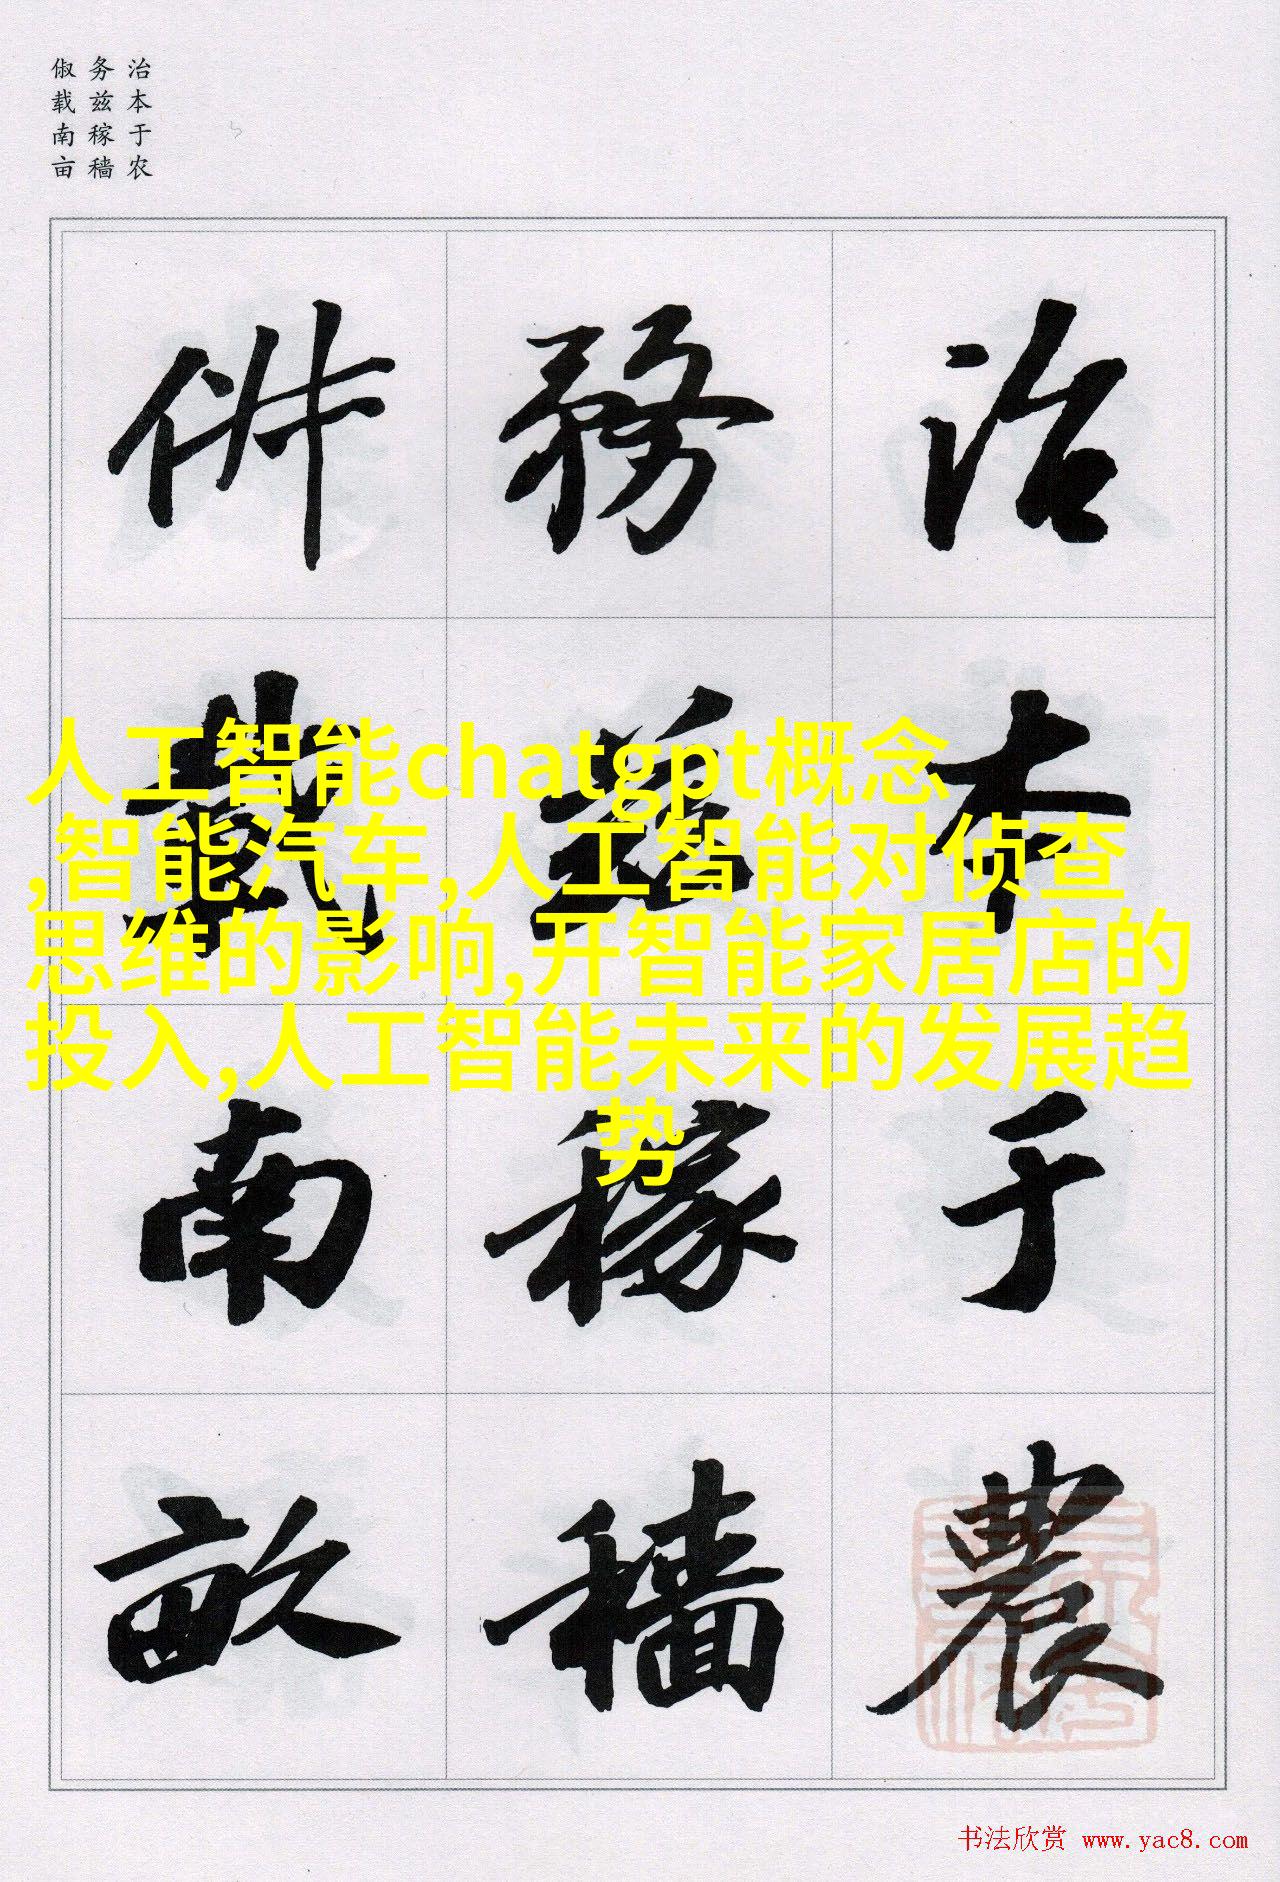 治本于农
务兹稼穑
俶载南亩
治本于農
務兹稼穡
俶载南畝
人工智能chatgpt概念
,智能汽车,人工智能对侦查
思维的影响,开智能家居店的
投入,人工智能未来的发展趋
势
书法欣赏 www.yac8.com